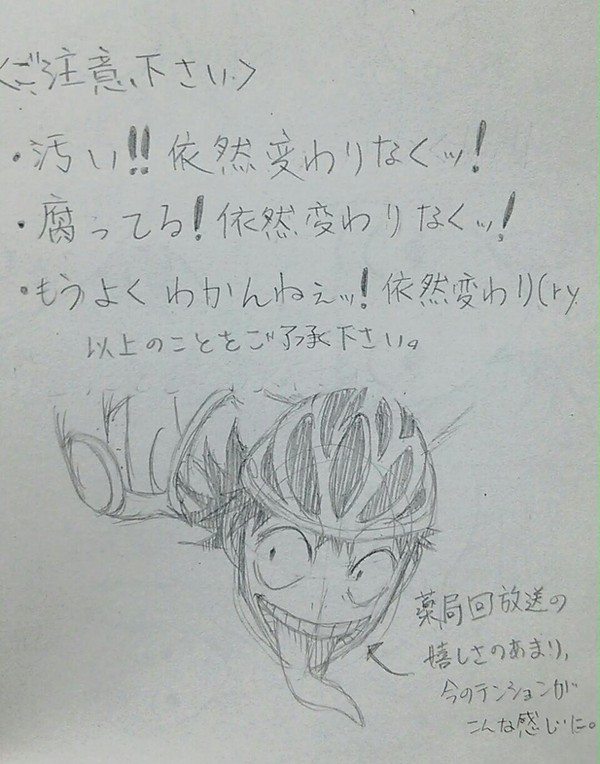 〈ご注意下さい〉
・汚い!!依然変わりなくッ!
・腐ってる!依然変わりなくッ!
・もうよくわかんねぇッ!依然変わり(ry
以上のことをご了承下さい。
薬局回放送の
嬉しさのあまり、
今のテンションが
こんな感じに。